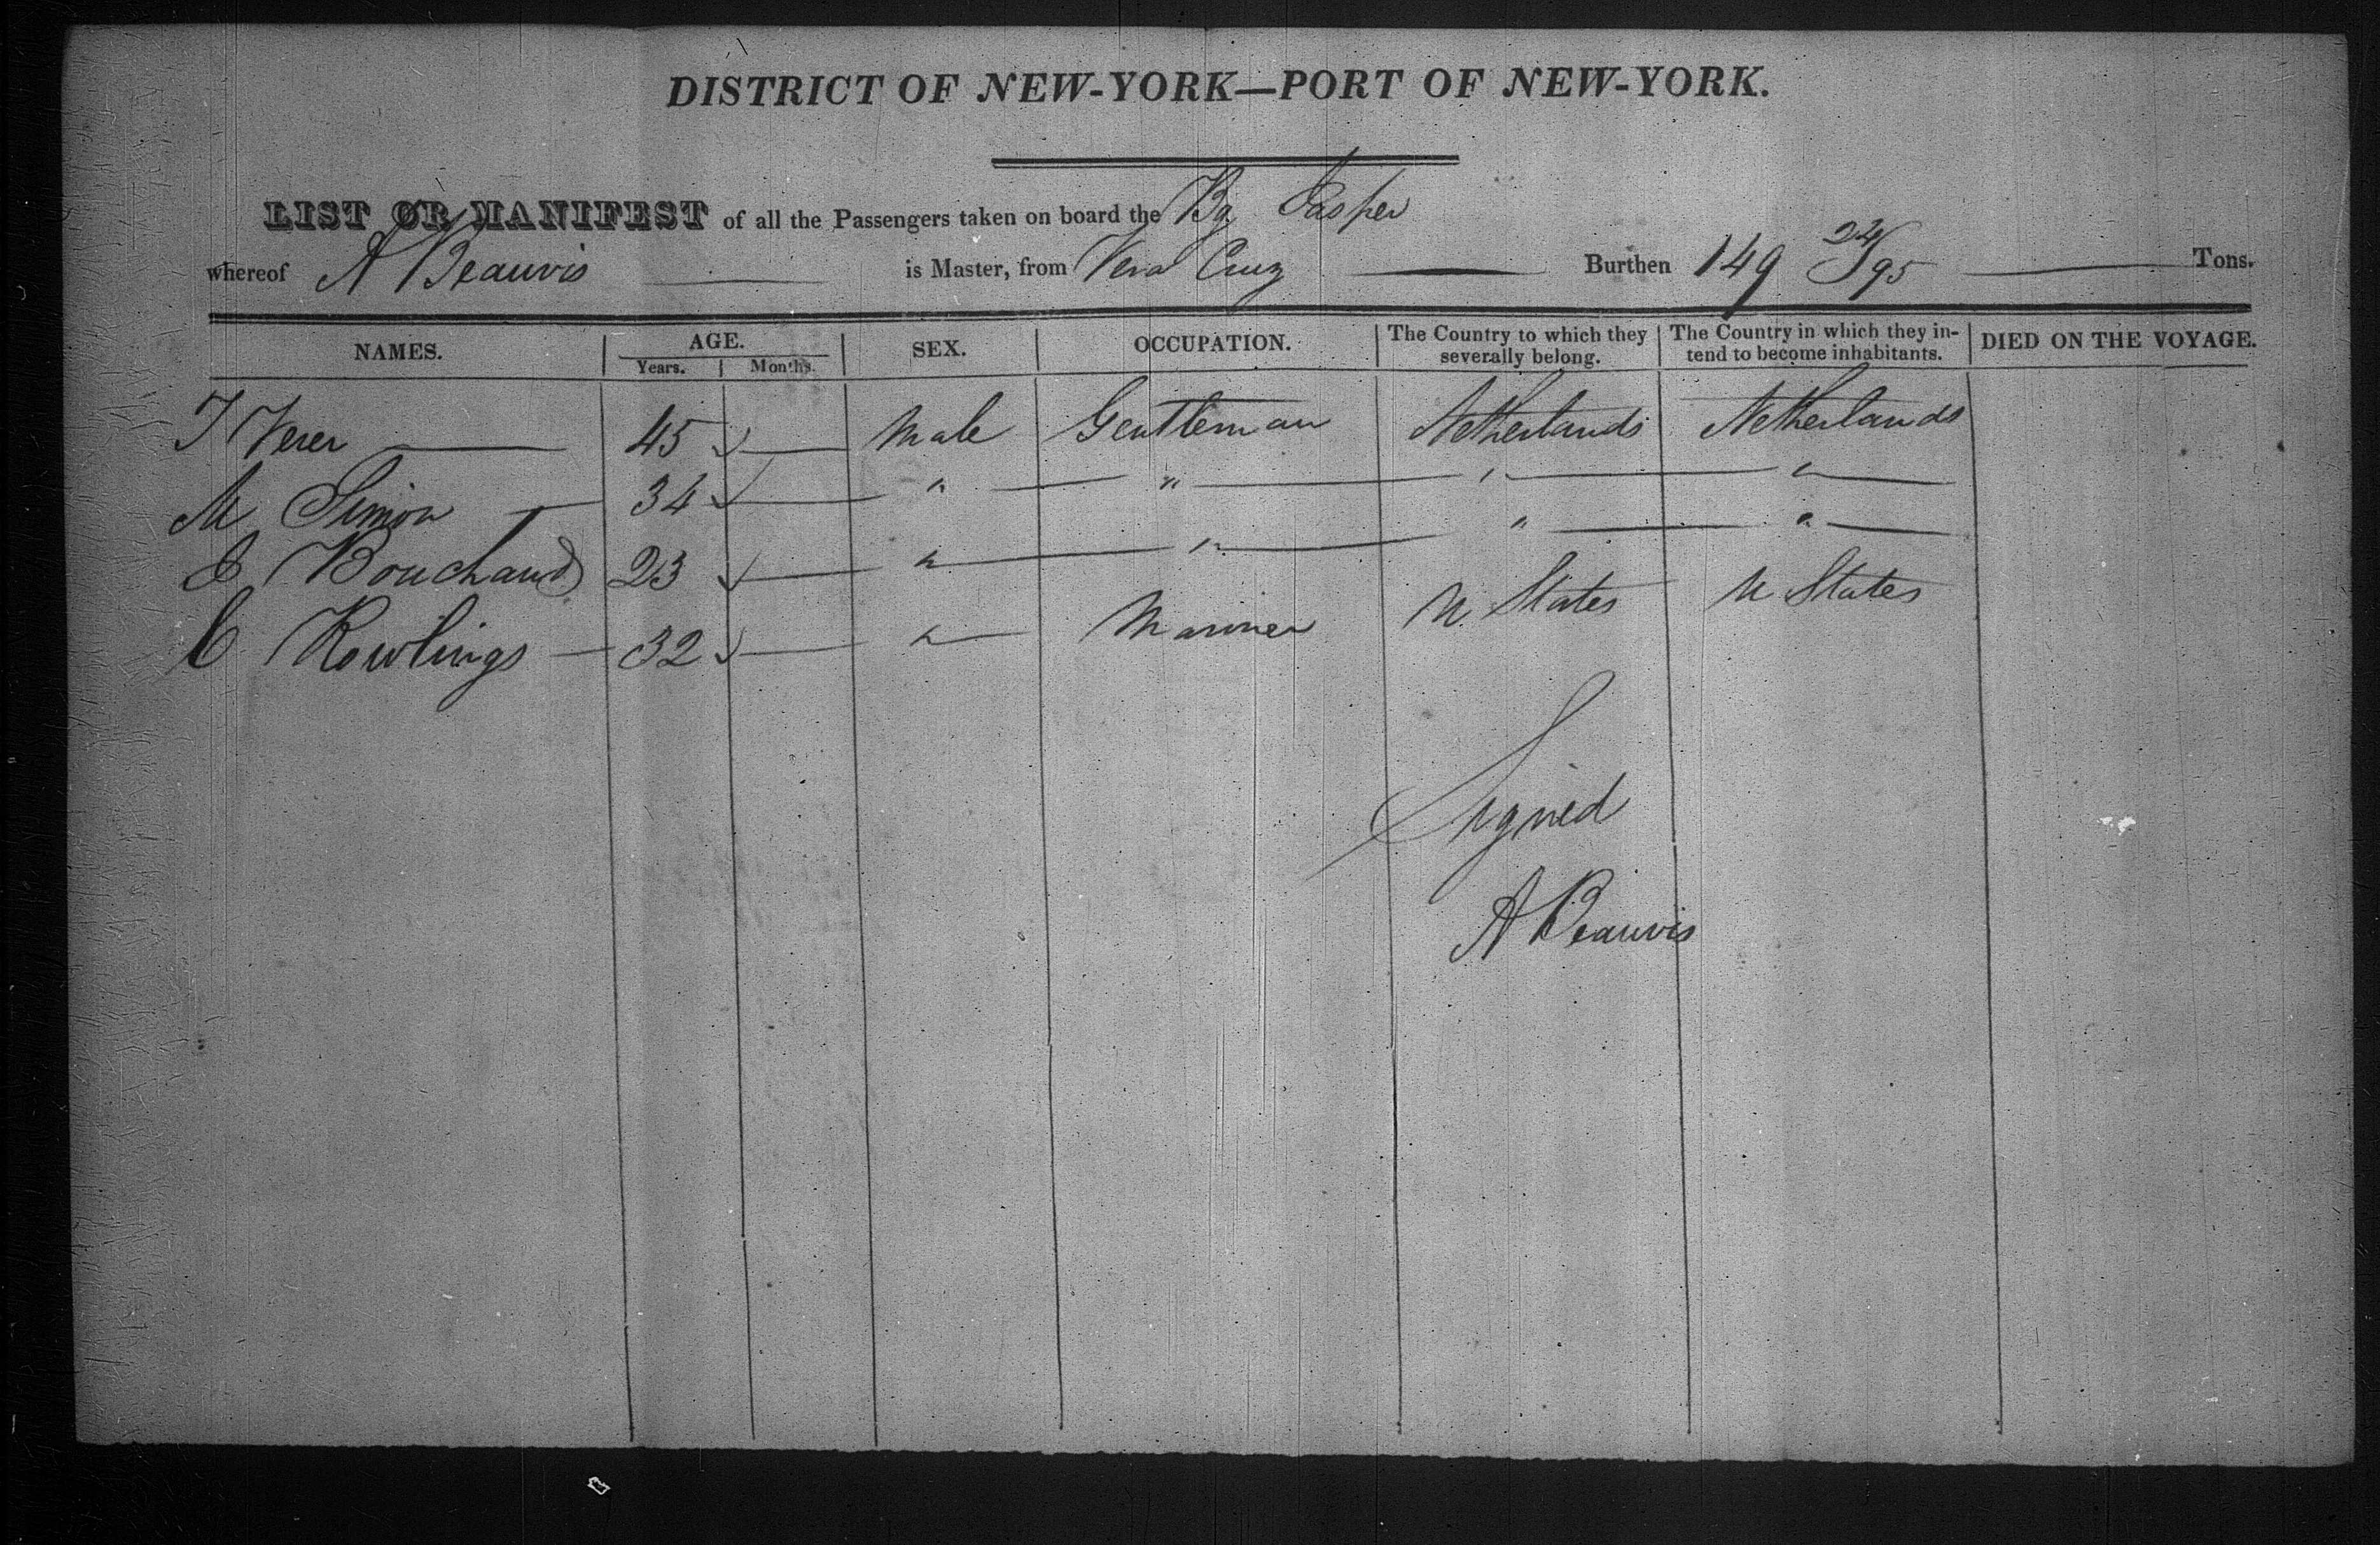 DISTRICT OF NEW-YORK—PORT OF NEW-YORK.
LIST OR MANIFEST of all the Passengers taken on board the Bg Casper
whereof A Beauvis is Master, from Vera Cruz Burthen 149 24/95 Tons.
NAMES. AGE. Years. Months. SEX. OCCUPATION. The Country to which they severally belong. The Country in which they intend to become inhabitants. DIED ON THE VOYAGE.
Verer 45 Male Gentleman Netherlands Netherlands
M Simon 34 " " " "
Bouchaud 23 " " " "
C Rowlings 32 " Mariner U States U States
Signed
A Beauvis